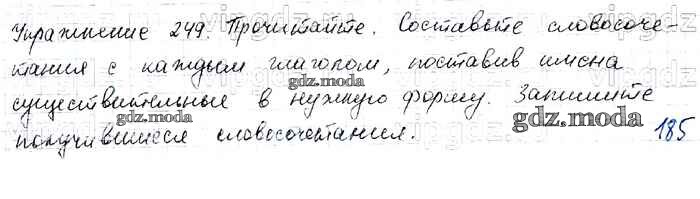 Упражнение 249. Прочитайте. Составьте словосоче-
тания с каждым глаголом, поставив имена
gdz.moda
существительные в нужную форму. Запишите
gdz.moda
gdz.moda
получившиеся словосочетания.
185